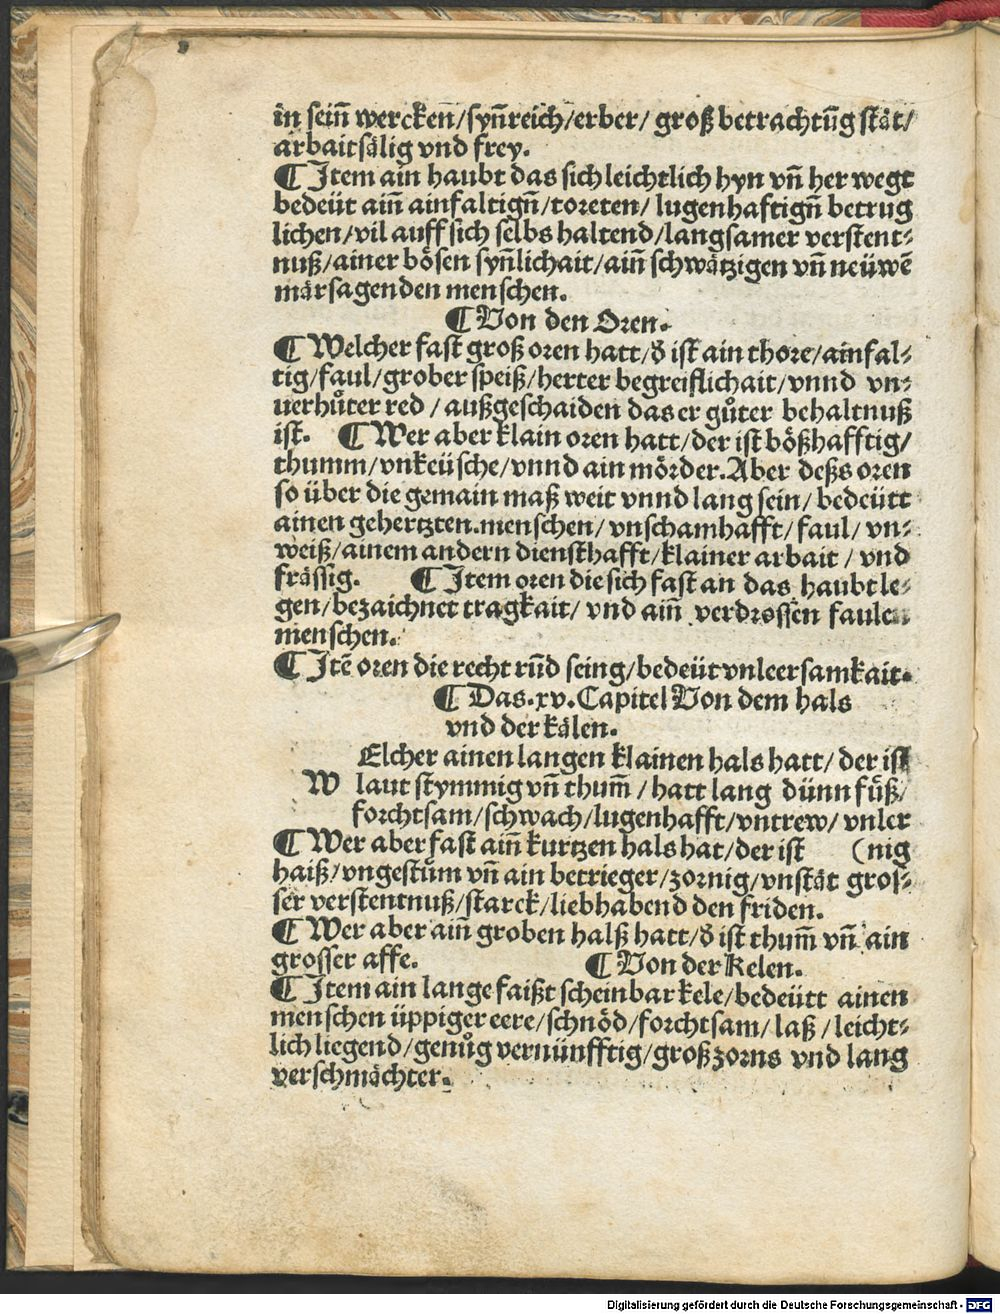 in seiñ wercken/syñreich/erber/ groß betrachtũg stät/
arbaitsälig vnd frey.
¶ Item ain haubt das sich leichtlich hyn vñ her wegt
bedeüt aiñ ainfaltigñ/toreten/ lugenhaftigñ betrug
lichen/vil auff sich selbs haltend/langsamer verstent⸗
nuß/ainer bösen syñlichait/aiñ schwätzigen vñ neüwẽ
märsagenden menschen.
¶ Von den Oren.
¶ Welcher fast groß oren hatt/ď ist ain thore/ainfal⸗
tig/faul/grober speiß/herter begreiflichait/vnnd vn⸗
uerhůter red / außgeschaiden das er gůter behaltnuß
ist. ¶ Wer aber klain oren hatt/der ist bößhafftig/
thumm/vnkeüsche/vnnd ain mörder. Aber deßs oren
so über die gemain maß weit vnnd lang sein/ bedeütt
ainen gehertzten.menschen/ vnschamhafft/ faul/ vn⸗
weiß/ainem andern diensthafft/klainer arbait / vnd
frässig. ¶ Item oren die sich fast an das haubt le⸗
gen/bezaichnet tragkait/ vnd aiñ verdrossen faulen
menschen.
¶ Itẽ oren die recht rũd seing/bedeüt vnleersamkait.
¶ Das.xv.Capitel Von dem hals
vnd der kälen.
Elcher ainen langen klainen hals hatt/ der ist
W laut stymmig vñ thum̃ / hatt lang dünn füß/
forchtsam/schwach/lugenhafft/vntrew/ vnler
¶ Wer aber fast aiñ kurtzen hals hat/der ist (nig
haiß/vngestům vñ ain betrieger/zornig/vnstät gros⸗
ser verstentnuß/starck/liebhabend den friden.
¶ Wer aber aiñ groben halß hatt/ď ist thum̃ vñ ain
grosser affe. ¶ Von der Kelen.
¶ Item ain lange faißt scheinbar kele/bedeütt ainen
menschen üppiger eere/schnöd/forchtsam/laß /leicht⸗
lich liegend/genůg vernünfftig/groß zorns vnd lang
verschmächter.
Digitalisierung gefördert durch die Deutsche Forschungsgemeinschaft - DFG